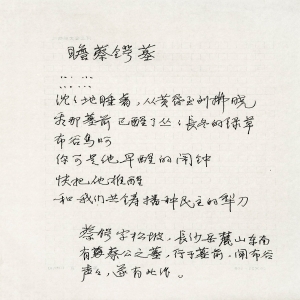 瞻蔡锷墓
沈々地睡着，从黄昏到拂晓
墓前已醒了丛々長冬的绿草
布谷鸟呵
你可是他早醒的闹钟
快把他推醒
和我们共铸播种民主的犁刀
蔡锷字松坡，長沙岳麓山东南
有蔡公之墓，行于墓前，闻布谷
声々，遂有此诗。